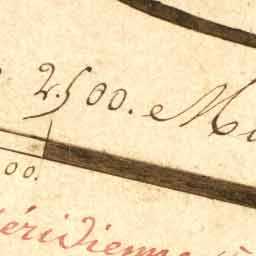 2.500. M
00.
éridienne